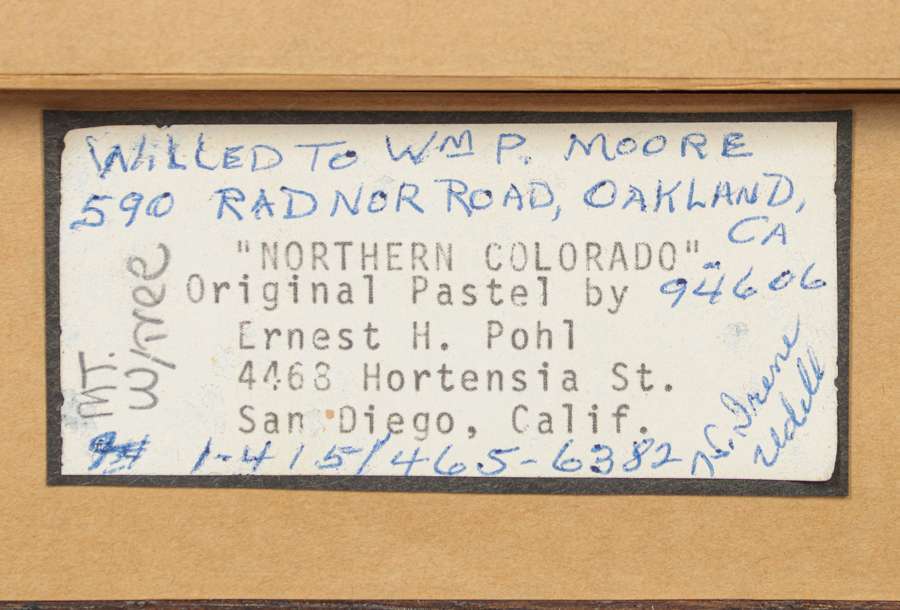 WILLED TO WM P. MOORE
590 RADNOR ROAD, OAKLAND,
CA
94606
"NORTHERN COLORADO".
Original Pastel by
Ernest H. Pohl
4468 Hortensia St.
San Diego, Calif.
MT.
W/TREE
1-415/465-6382
Irene